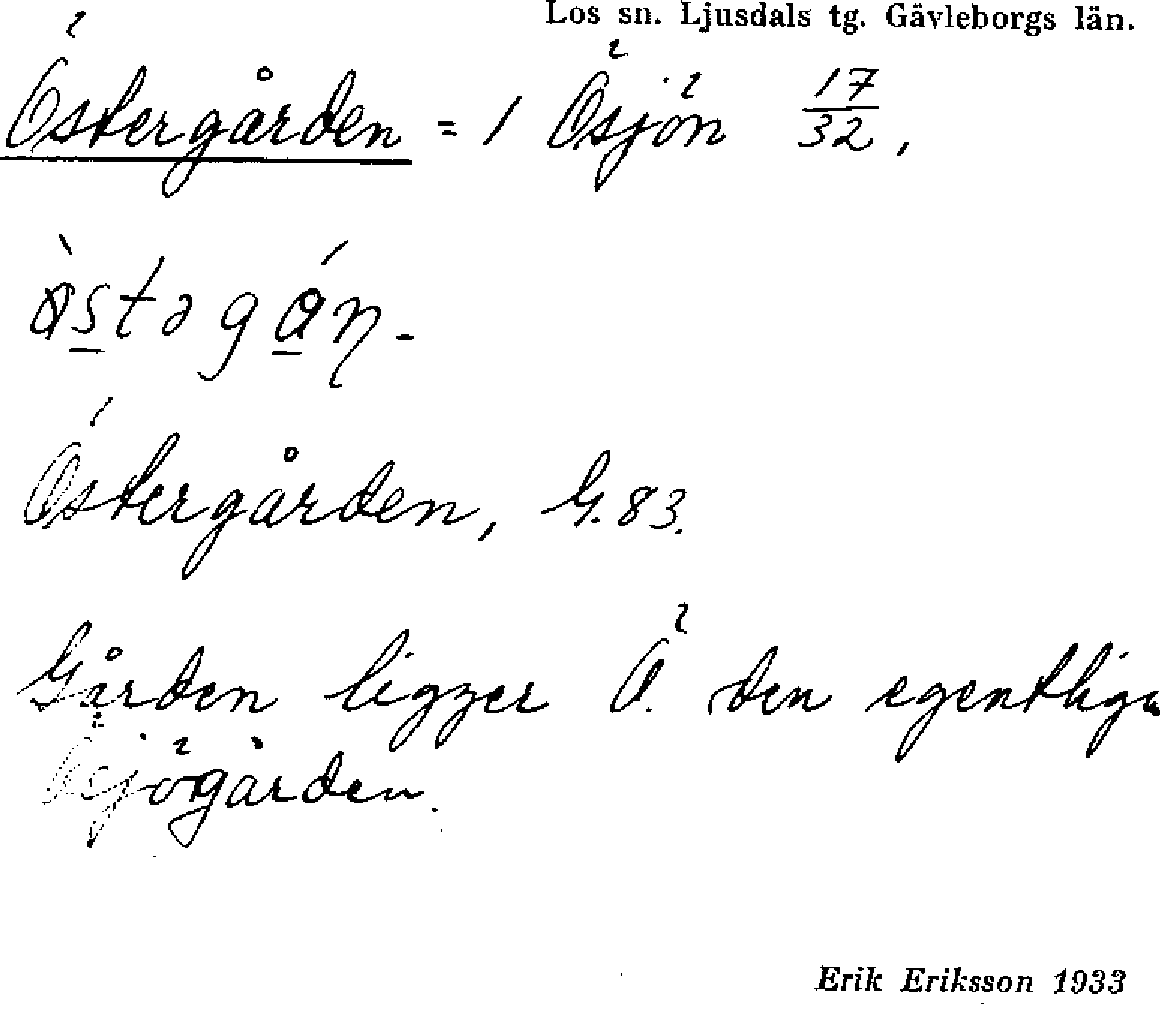 Los sn. Ljusdals tg. Gävleborgs län.
Östergården = 1 Ösjön 17/32,
Östergården, G. 83.
Gården ligger Ö. den egentliga
Ösjögården.
Erik Eriksson 1933